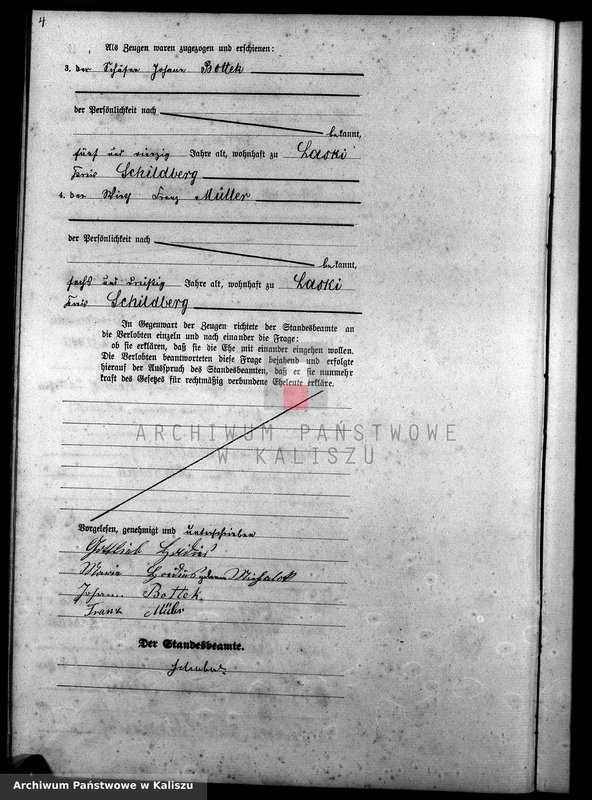 4
Als Zeugen waren zugezogen und erschienen:
3. der Schäfer Johann Bottek
der Persönlichkeit nach
bekannt,
fünf und vierzig Jahre alt, wohnhaft zu Laski
Kreis Schildberg
4. der Wirth Franz Müller
der Persönlichkeit nach
bekannt,
sechs und dreißig Jahre alt, wohnhaft zu Laski
Kreis Schildberg
In Gegenwart der Zeugen richtete der Standesbeamte an
die Verlobten einzeln und nach einander die Frage:
ob sie erklären, daß sie die Ehe mit einander eingehen wollen.
Die Verlobten beantworteten diese Frage bejahend und erfolgte
hierauf der Ausspruch des Standesbeamten, daß er sie nunmehr
kraft des Gesetzes für rechtmäßig verbundene Eheleute erkläre.
ARCHIWUM PAŃSTWOWE
W KALISZU
Vorgelesen, genehmigt und unterschrieben
Gottlieb
Maria Michalok
Johann Bottek.
Franz Müller
Der Standesbeamte.
Archiwum Państwowe w Kaliszu